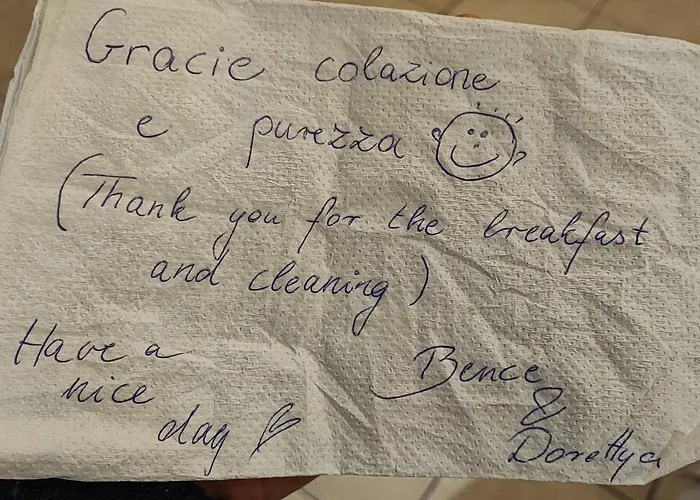 Gracie colazione
e purezza
(Thank you for the breakfast
and cleaning)
Have a
nice
day
Bence
&
Dorottya